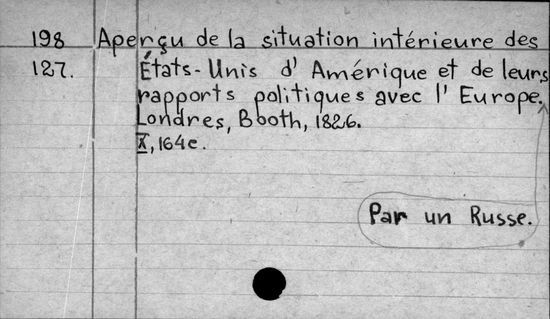 198 Aperçu de la situation intérieure des
127. États-Unis d'Amérique et de leurs
rapports politiques avec l'Europe.
Londres, Booth, 1826.
X, 164c.
Par un Russe.